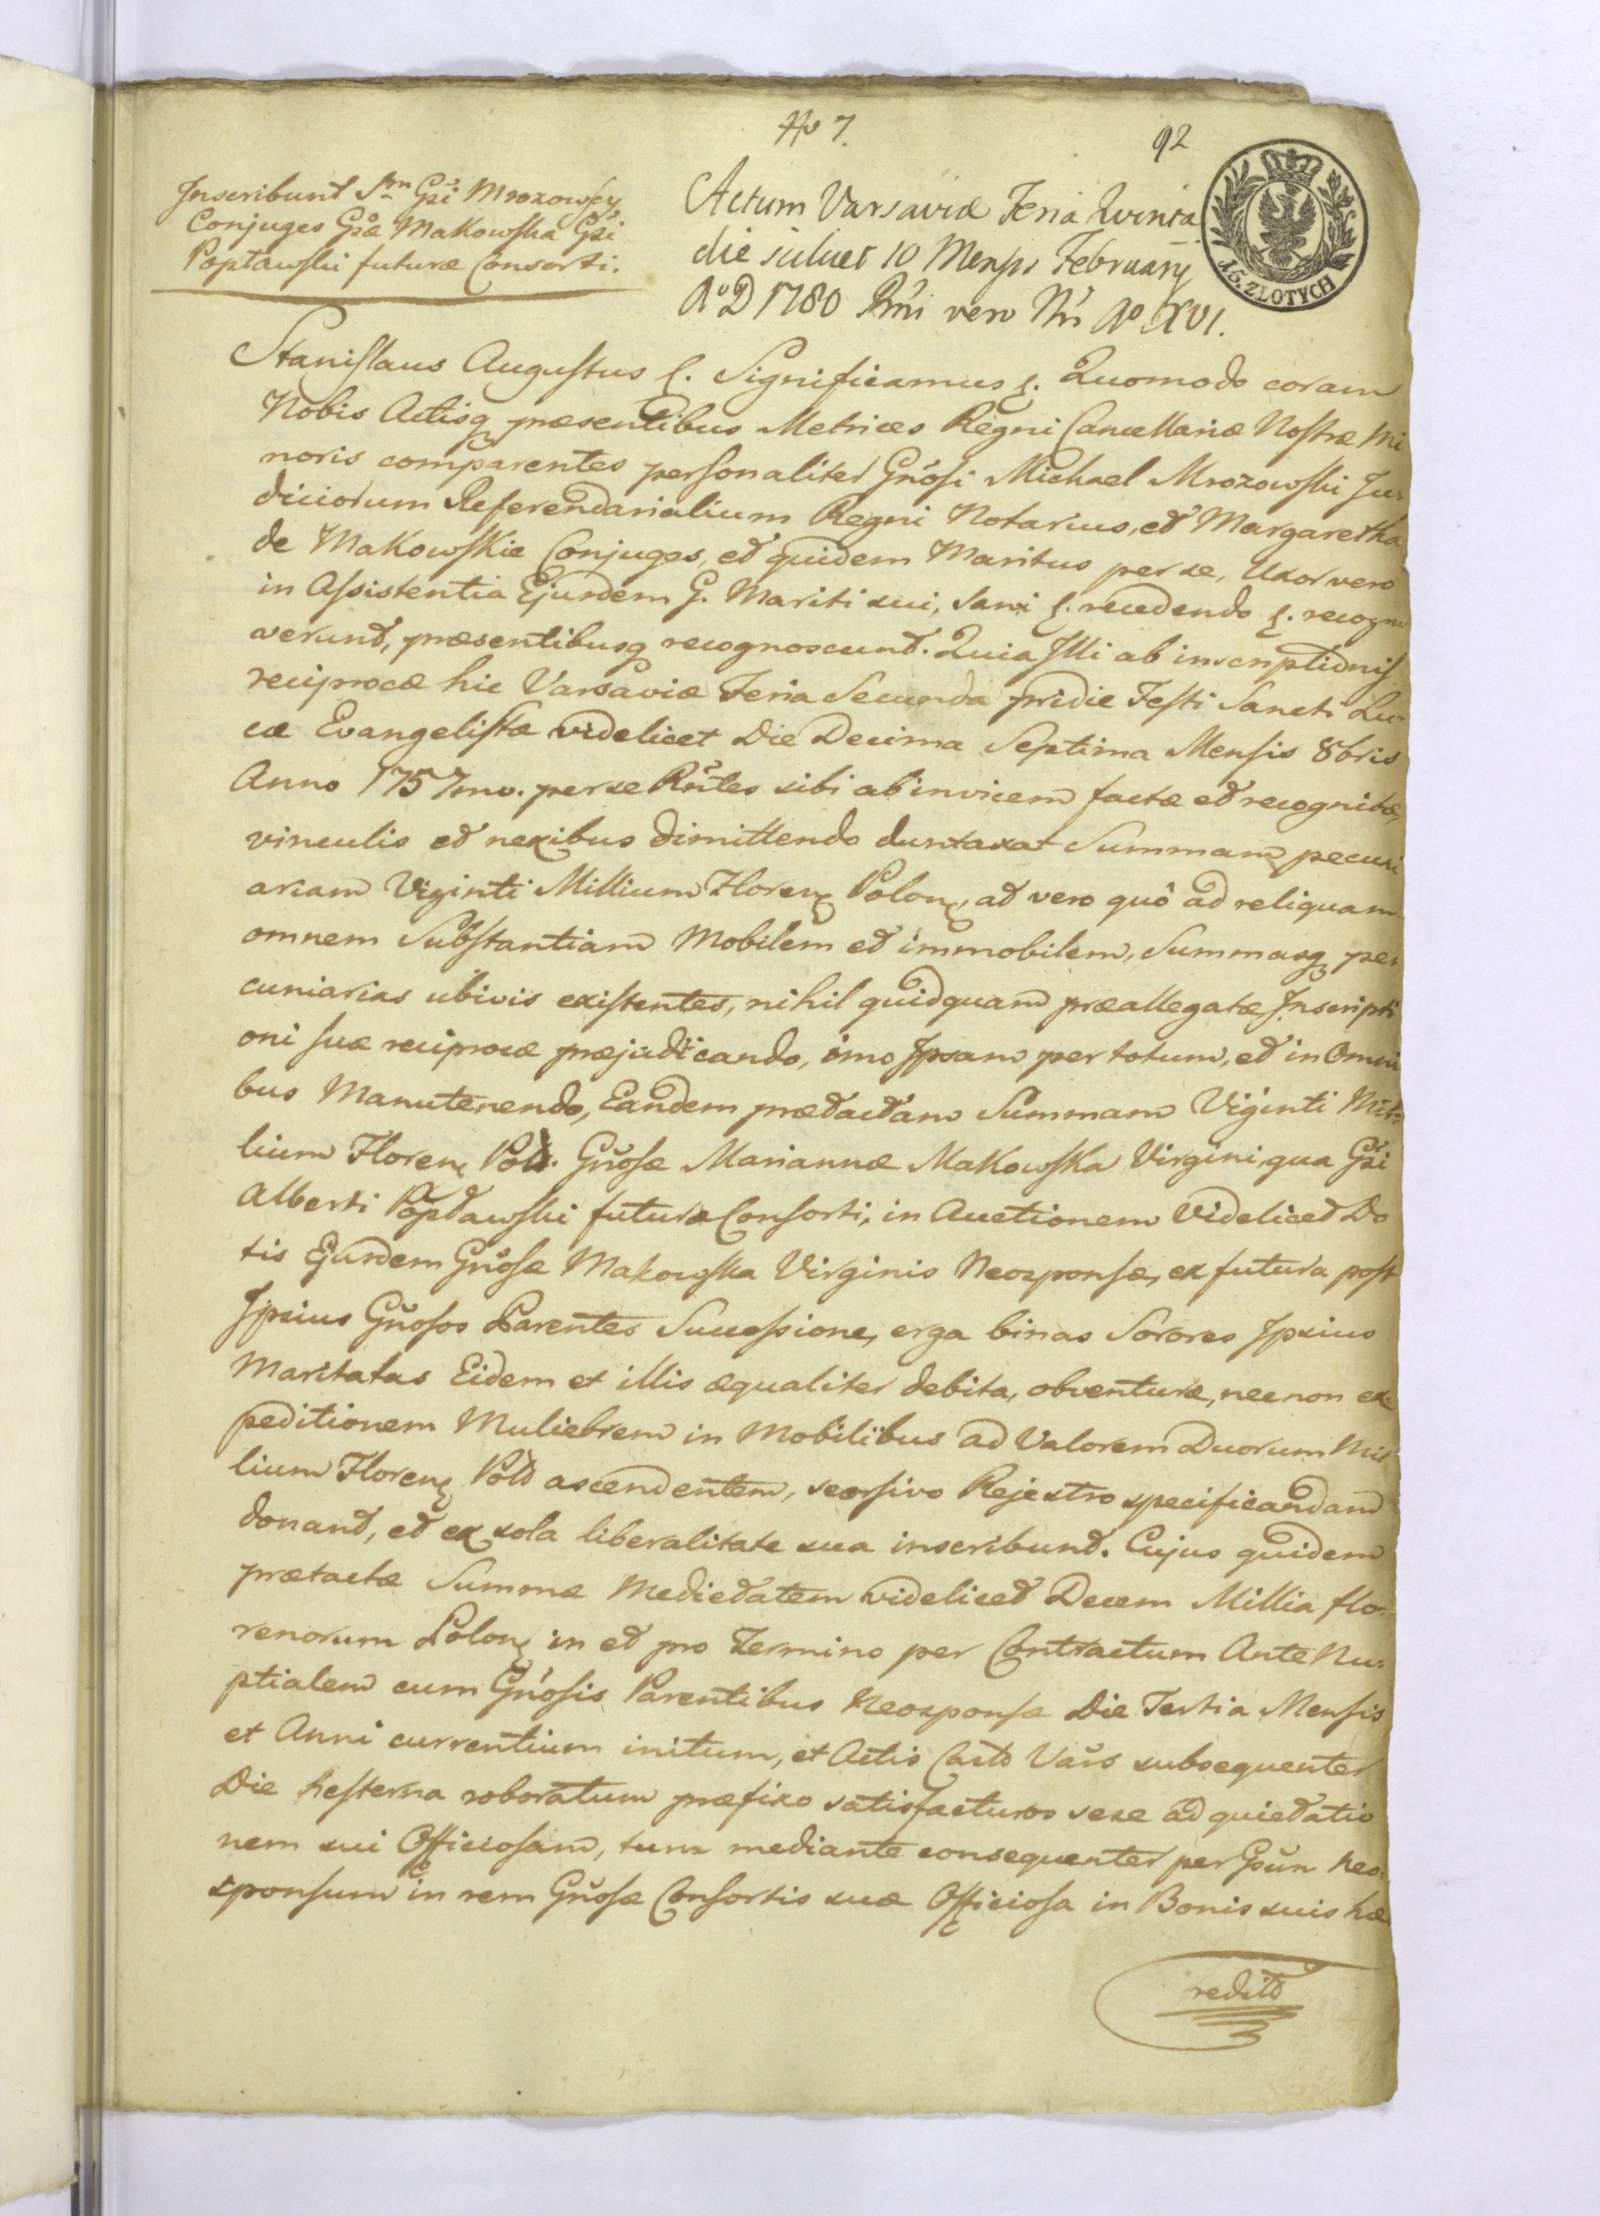 No 7.
92
15. ZLOTYCH
Inscribunt Sm Gsi Mrozowscy
Conjuges Gsæ Makowska Gsi
Popławski futuræ Consorti.
Actum Varsaviæ Feria Quinta
die scilicet 10 Mensis February
Ao D 1780 Rni vero Nri Ao XVI.
Stanislaus Augustus &. Significamus &. Quomodo coram
Nobis Actisq præsentibus Metrices Regni Cancellariæ Nostræ Mi
noris comparentes personaliter Gnosi Michael Mrozowski Ju-
diciorum Referendarialium Regni Notarius, et Margaretha
de Makowskie Conjuges, et quidem Maritus per se, Uxor vero
in Assistentia Ejusdem G. Mariti sui, Sani &. recedendo &. recogno
verunt, præsentibusq recognoscunt. Quia Illi ab inscriptionis
reciprocæ hic Varsaviæ Feria Secunda pridie Festi Sancti Lu-
cæ Evangelistæ videlicet Die Decima Septima Mensis 8bris
Anno 1757mo. per se Rntes sibi ab invicem factæ et recognitæ,
vinculis et nexibus dimittendo duntaxat Summam pecuni
ariam Viginti Millium Floren Polon, at vero quô ad reliquam
omnem Substantiam Mobilem et immobilem, Summasq pe-
cuniarias ubivis existentes, nihil quidquam præallegatæ Inscripti
oni suæ reciprocæ præjudicando, imo Ipsam per totum, et in Omni
bus Manutenendo, Eandem prædactam Summam Viginti Mil-
lium Floren Pol. Gnosæ Mariannæ Makowska Virgini, qua Gsi
Alberti Popławski futuræ Consorti, in Auctionem videlicet Do
tis Ejusdem Gnosæ Makowska Virginis Neosponsæ, ex futura post
Ipsius Gnosos Parentes Successione, erga binas Sorores Ipsius
Maritatas Eidem et illis æqualiter debita, obventuræ, necnon ex
peditionem Muliebrem in Mobilibus ad Valorem Duorum Mil
lium Floren Pol ascendentem, seorsivo Rejestro specificandam
donant, et ex sola liberalitate sua inscribunt. Cujus quidem
prætactæ Summæ Medietatem videlicet Decem Millia flo-
renorum Polon in et pro Termino per Contractum Ante Nu-
ptialem cum Gnosis Parentibus Neosponsæ Die Tertia Mensis
et Anni currentium initum, et Actis Castr Vars subsequenter
Die hesterna roboratum præfixo satisfacturos sese ad quietatio
nem sui Officiosam, tum mediante consequenter per Gsun Neo-
sponsum in rem Gnosæ Consortis suæ Officiosa in Bonis suis hæ
redit